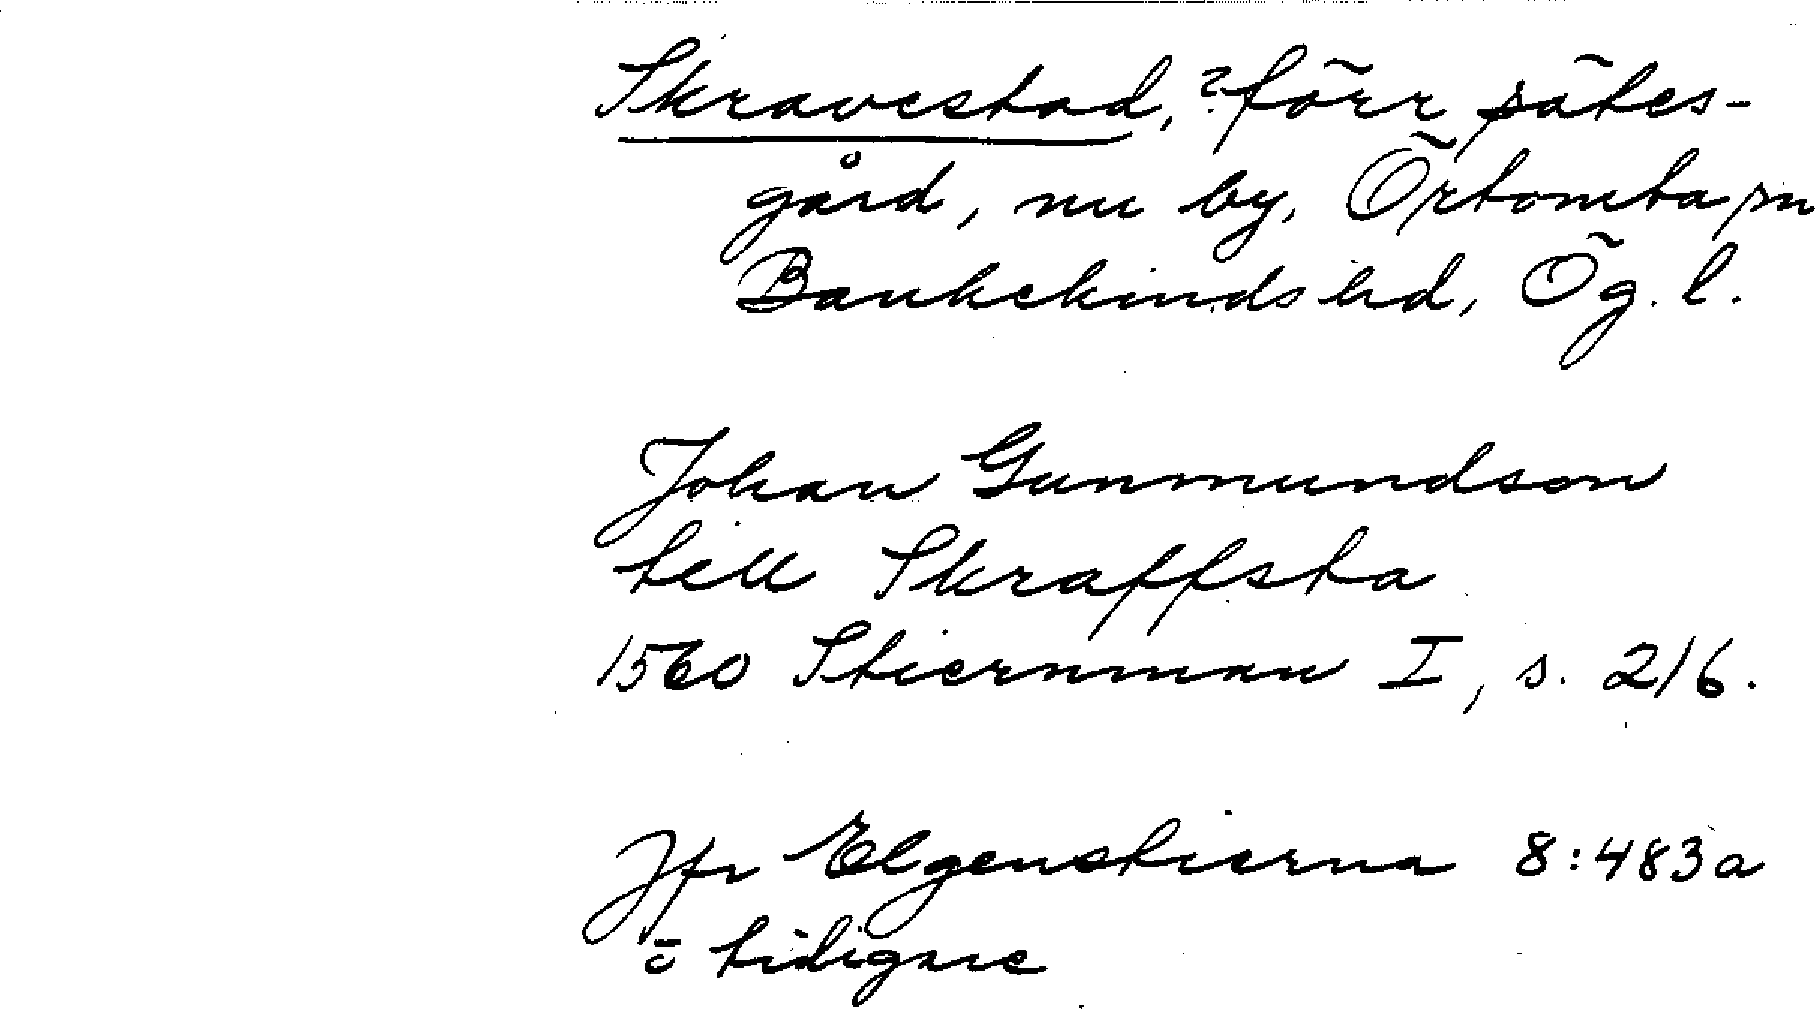 Skravestad, ? förr sätes-
gård, nu by, Örtomta sn
Bankekinds hd, Ög. l.
Johan Gunmundson
till Skraffsta
1560 Stiernman I, s. 216.
Jfr Elgenstierna 8:483a
o tidigare